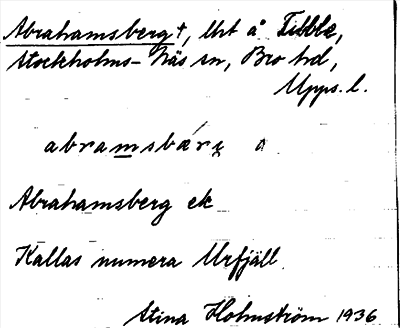 Abrahamsberg†, lht å Tibble,
Stockholms-Näs sn, Bro hd,
Upps. l.
abramsbárɩ̨ a
Abrahamsberg ek
Kallas numera Urfjäll.
Stina Holmström 1936